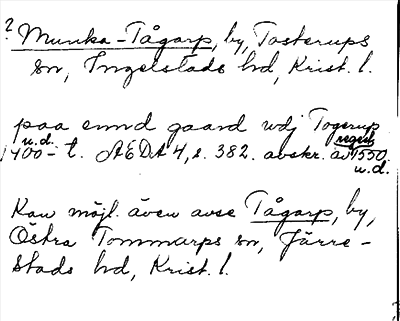 ? Munka-Tågarp, by, Tosterups
sn, Ingelstads hd, Krist. l.
paa ennd gaard udj Togerup
u.d. regest
1400-t. ÆDA 4, s. 382. avskr. av 1550
u.d.
Kan möjl. även avse Tågarp, by,
Östra Tommarps sn, Järre-
stads hd, Krist. l.